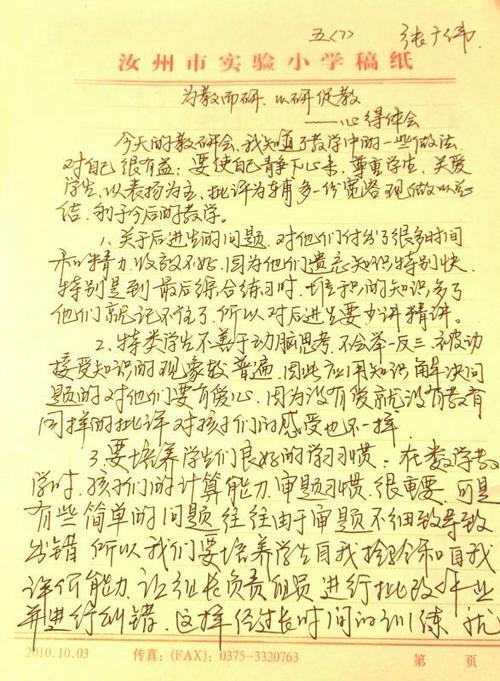 五(7) 张
汝州市实验小学稿纸
为教而研、以研促教
——心得体会
今天的教研会,我知道了教学中的一些做法
对自己很有益:要使自己静下心来,尊重学生、关爱
学生,以表扬为主,批评为辅多一份宽容
结,利于今后的教学。
1、关于后进生的问题,对他们付出了很多时间
和精力,收效不好,因为他们遗忘知识特别快,
特别是到最后综合练习时,堆积的知识多了
他们就记不住了,所以对后进生要少讲精讲。
2、特类学生不善于动脑思考,不会举一反三,被动
接受知识的现象较普遍,因此应用知识解决问
题的对他们要有爱心,因为没有爱就没有教育
同样的批评对孩子们的感受也不一样。
3、要培养学生们良好的学习惯:在数学教
学时,孩子们的计算能力,审题习惯,很重要,可是
有些简单的问题往往由于审题不细致导致
出错,所以我们要培养学生自我检验和自我
评价能力,让组长负责组员进行批改作业
并进行纠错,这样经过长时间的训练,就
2010.10.03 传真:(FAX):0375-3320763 第 页